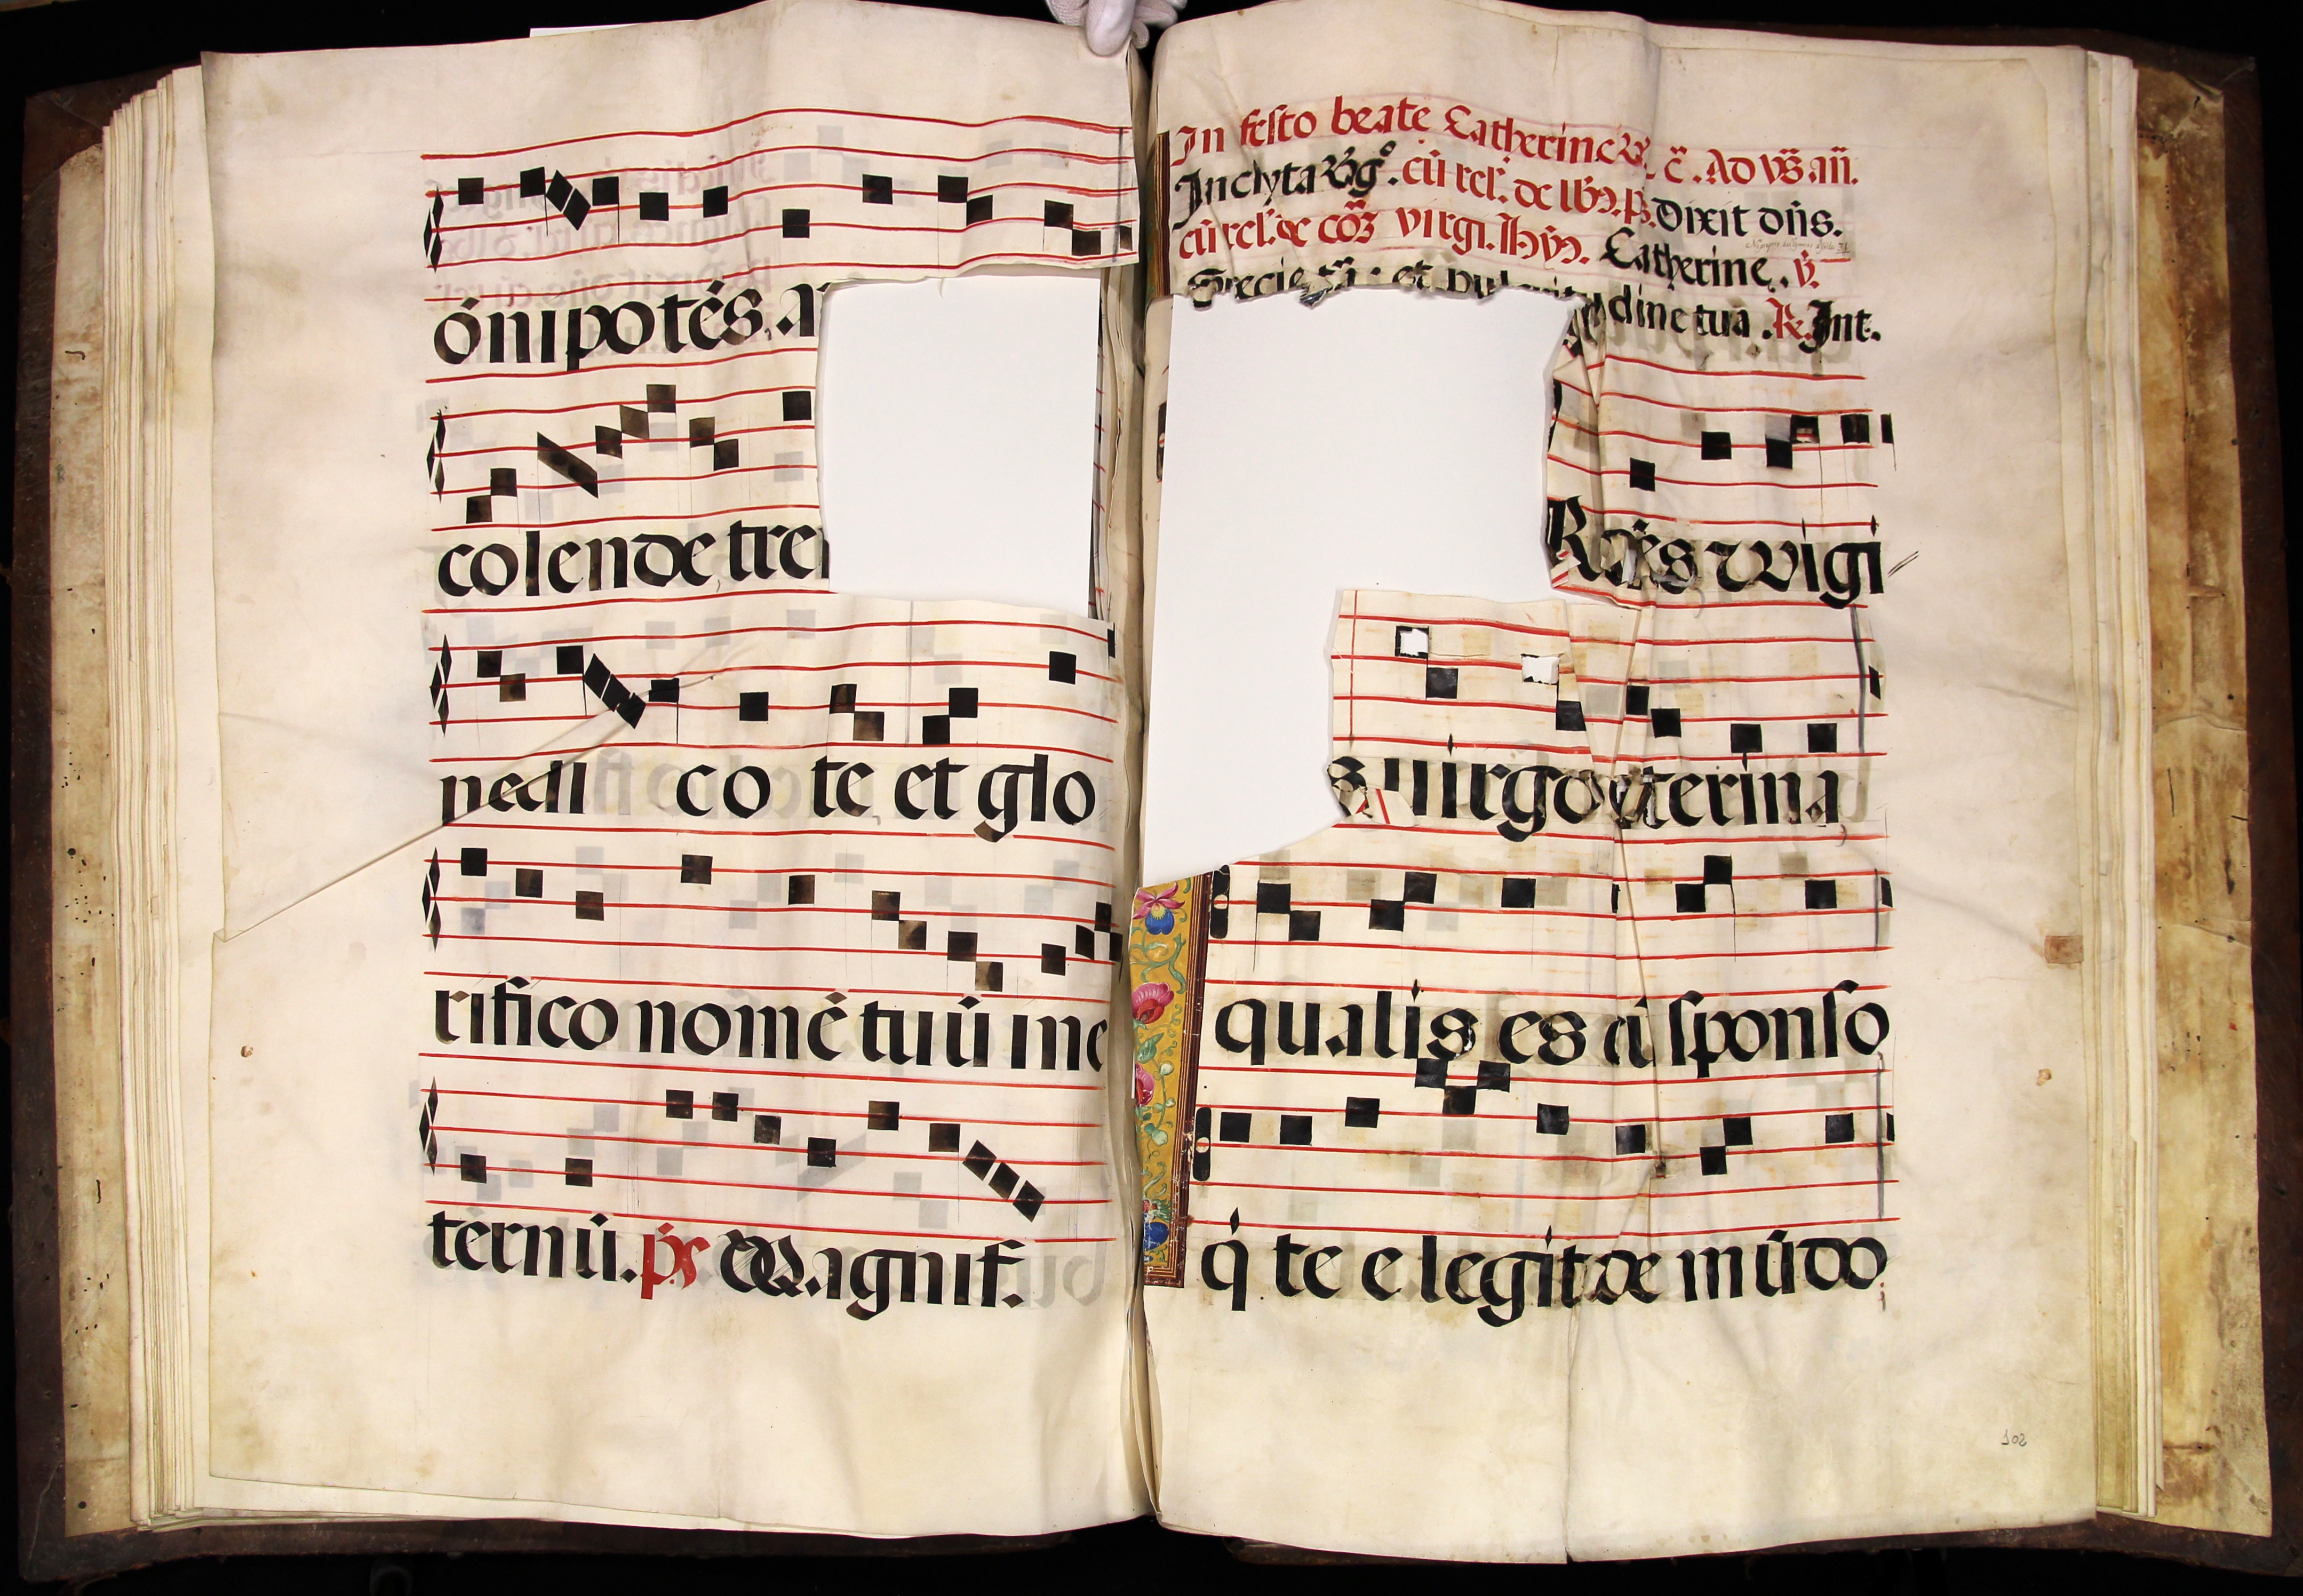 ónipotés. a
colende tre
nedi co te et glo
rifico nomē tuū ine
ternū. ps Magnif.
In festo beate Catherine vẜ. c̄. Ad vẜ. añ.
Inclyta virgo. cū rel. de lbꝫ. ps. Dixit dn̄s.
cū rel. de cōꝫ virgi. Ihūꝫ. Catherine. v̄.
Specie tūa: et pulcritudine tua. R. Int.
R es vigi
s uirgo caterina
qualis es a sponso
q́ te elegit de mūdo
102